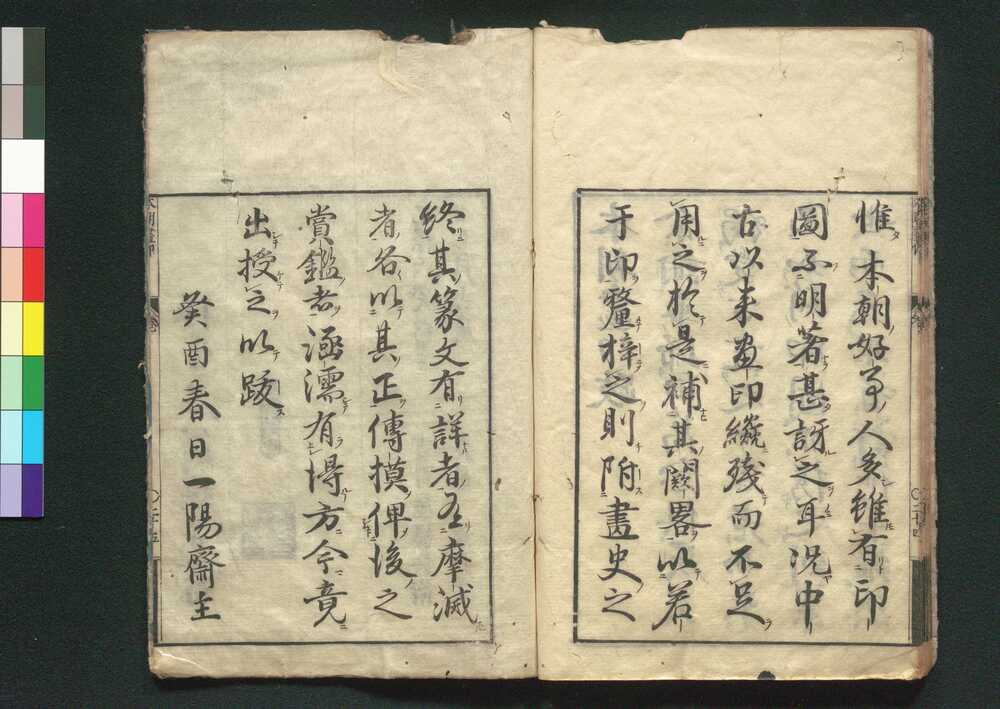 惟本朝好事人多雖有印
圖不明著甚訝之耳況中
古以来畫印纔殘而不足
用之於是補其闕畧以若
于印釐梓之則附畫史之
終其篆文有詳者有摩滅
者各以其正傳摸俾後之
賞鑑者涵濡有得方今竟
出授之以跋
癸酉春日一陽齋主